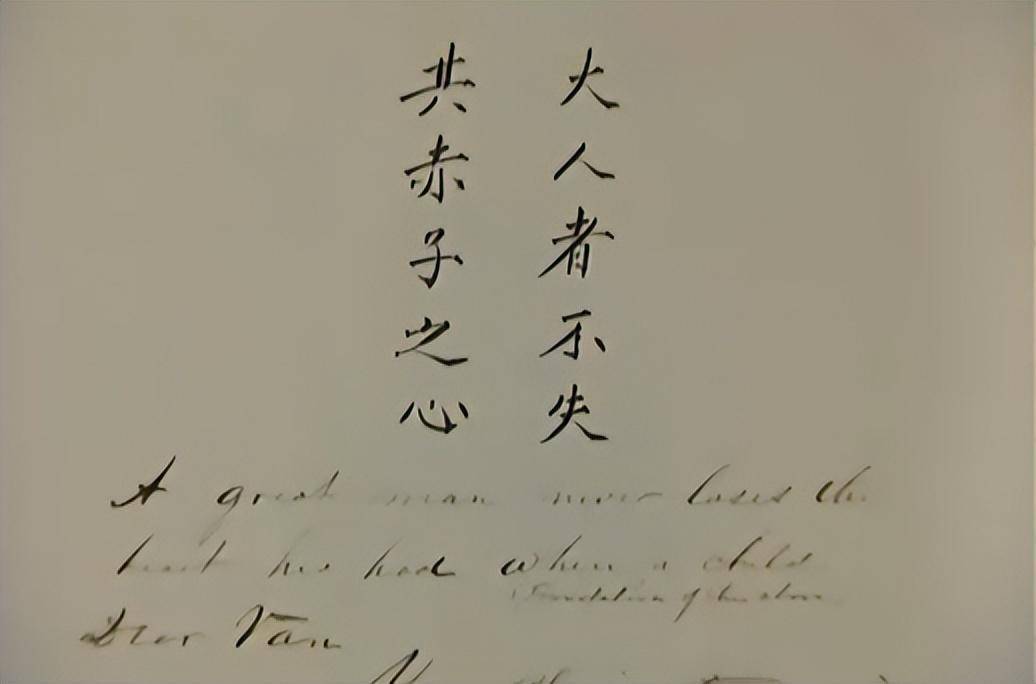 大人者不失
共赤子之心
A great man never loses the
heart he had when a child
(Translation of the above
Dear Van